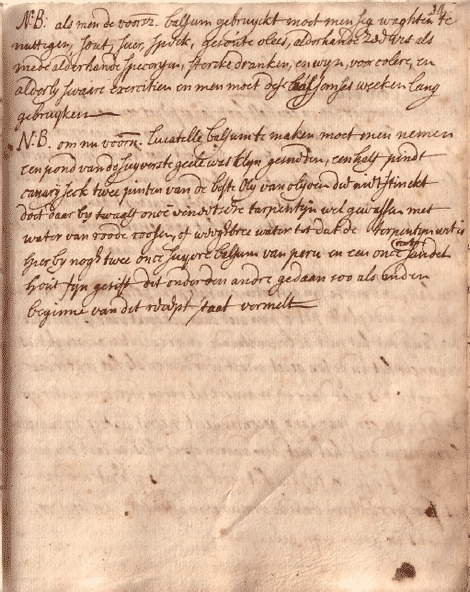 N:B: als men de voorz: balsum gebruyckt moet men sig waghten te
nuttigen, sout, suer, speck, gesoute vlees, alderhande
mede alderhande specerijen, stercke dranken, en wyn, voor colere, en
alderly swaare exercitien en men moet dese balsum ses weeken lang
gebruyken
N:B. om nu voorn: Lucatelle balsum te maken moet men nemen
een pond van de suyverste geele was klyn gesneden, een half pindt
canary seck twee pinten van de beste oly van olyven die niet stinckt
doet daar by twaalf once veneetsche terpentijn wel gewassen met
water van roode roosen, of weegbree water tot dat de terpentijn wit is
hier by nogh twee once suyvere balsum van peru en een once root sandel
hout fijn gesift dit onder den andre gedaan soo als in den
beginne van dit recept staat vermelt